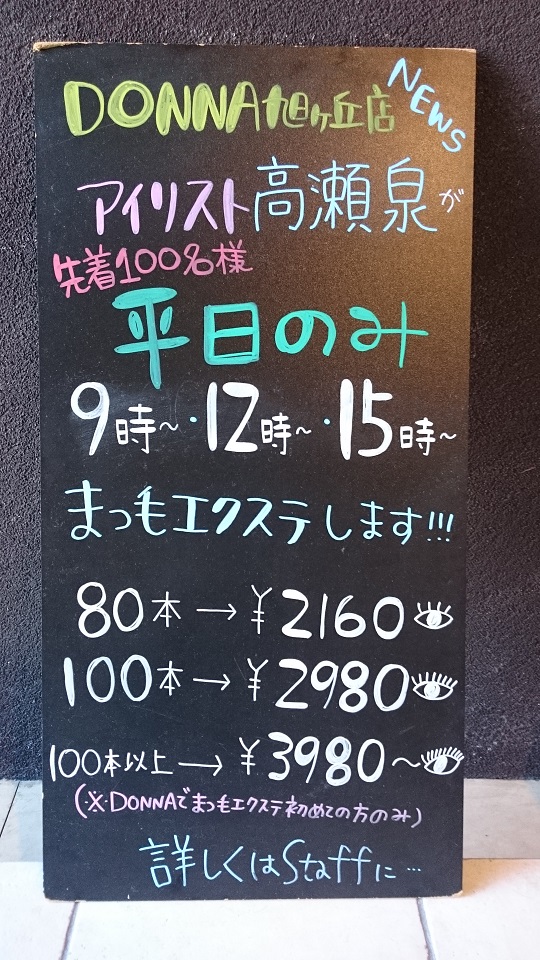 DONNA旭ヶ丘店
NEWS
アイリスト高瀬泉が
先着100名様
平日のみ
9時~・12時~・15時~
まつ毛エクステします!!!
80本→¥2160
100本→¥2980
100本以上→¥3980~
(※DONNAでまつ毛エクステ初めての方のみ)
詳しくはStaffに…